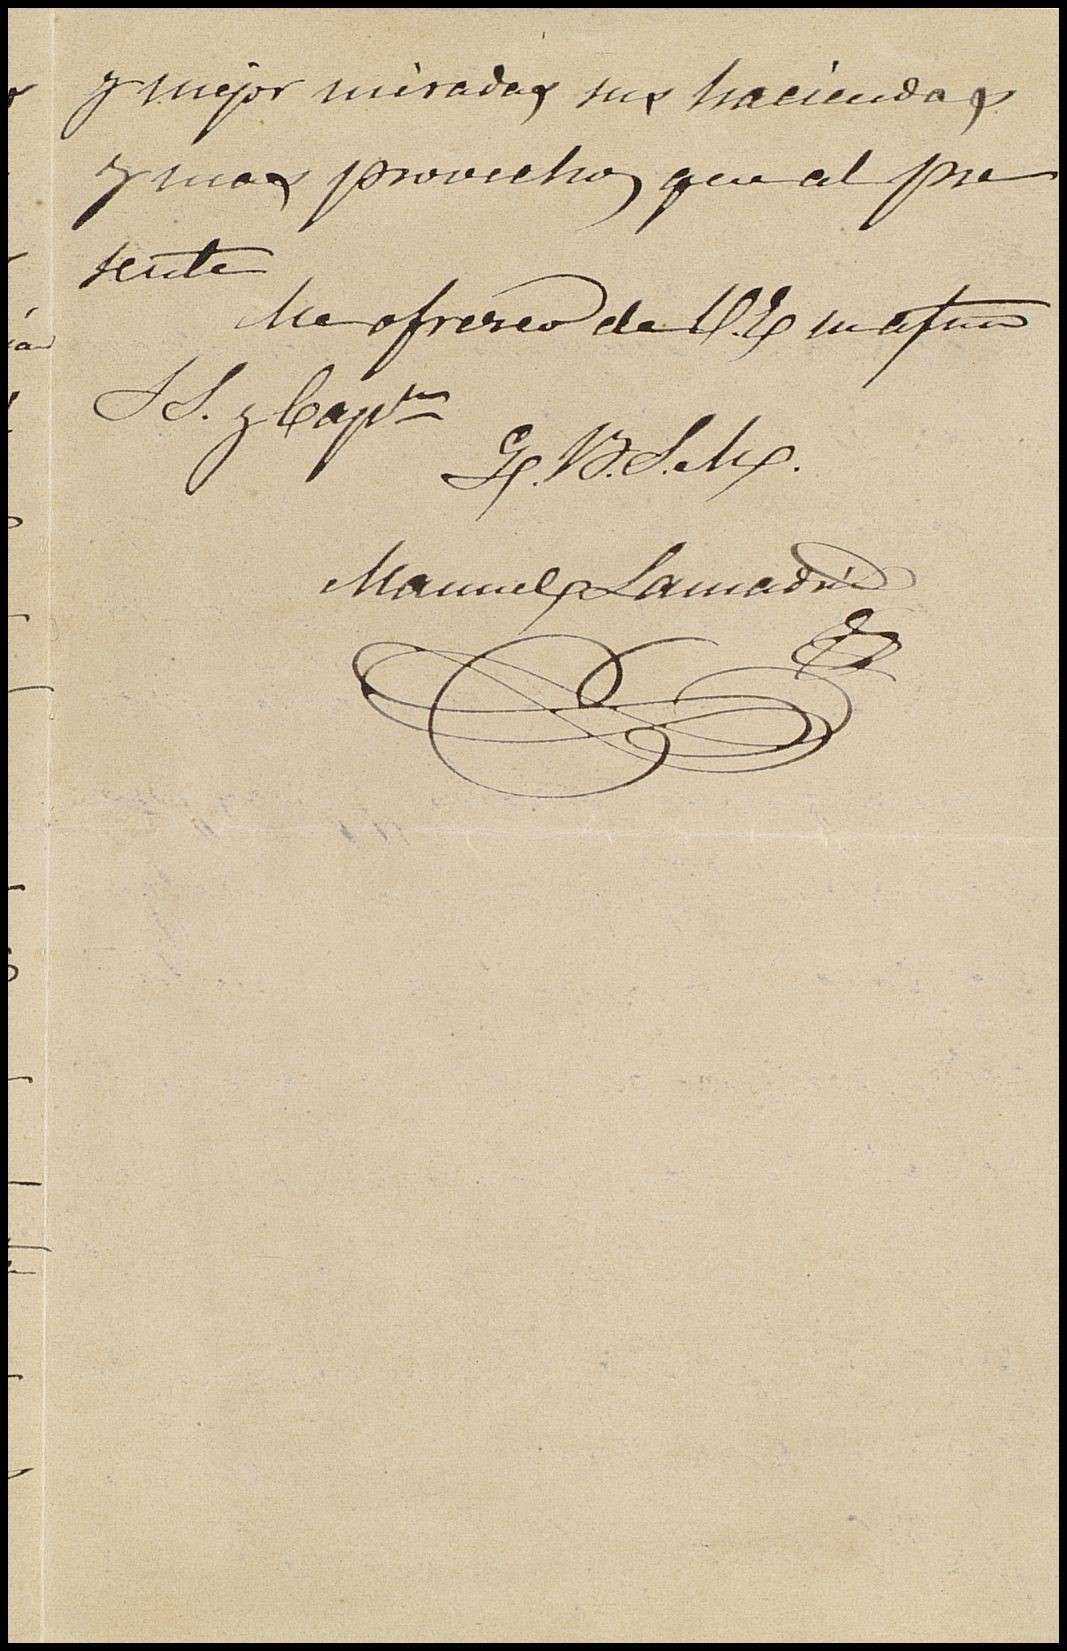 y mejor miradas sus haciendas
y mas provecho que al pre
sente
Me ofresco de V.E su afmo
S S. y Capn
Q. B. S. M.
Manuel Lamadrid